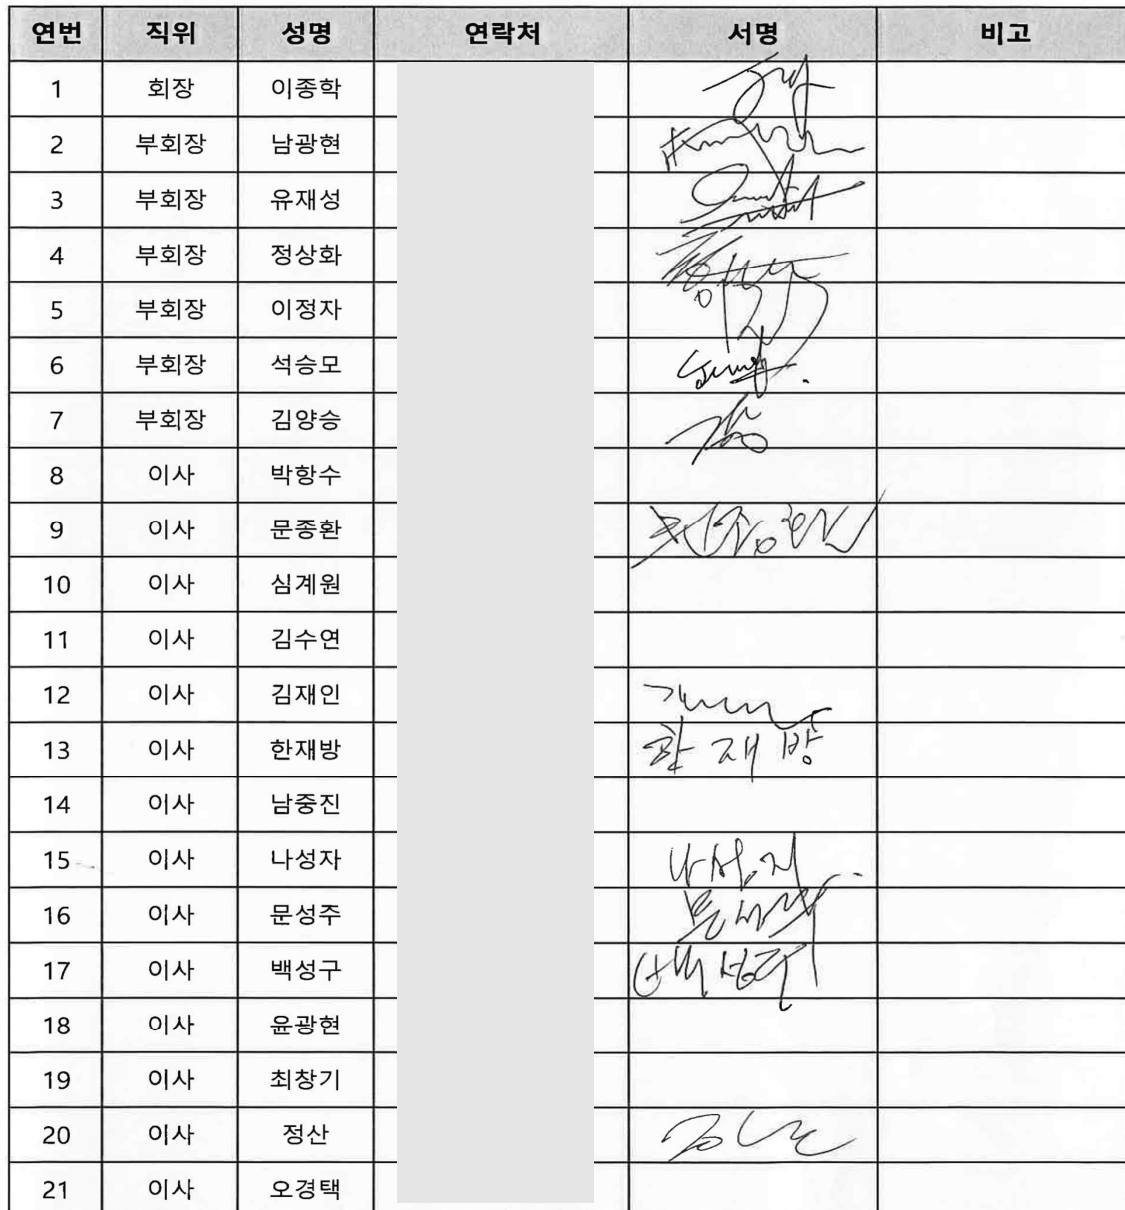 연번 직위 성명 연락처 서명 비고
1 회장 이종학
2 부회장 남광현
3 부회장 유재성
4 부회장 정상화
5 부회장 이정자
6 부회장 석승모
7 부회장 김양승
8 이사 박항수
9 이사 문종환
10 이사 심계원
11 이사 김수연
12 이사 김재인
13 이사 한재방 한재방
14 이사 남중진
15 이사 나성자 나성자
16 이사 문성주
17 이사 백성구 백성구
18 이사 윤광현
19 이사 최창기
20 이사 정산
21 이사 오경택